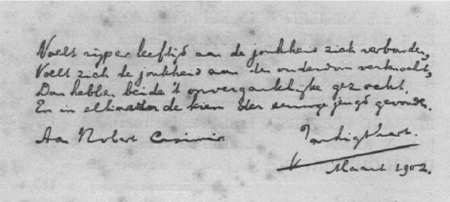 Voelt rijper leeftijd aan de jonkheid zich verbonden,
Voelt zich de jonkheid aan den ouderdom verknocht,
Dan hebben beide 't onvergankelijke gezocht
En in elkander de kiem der eeuwge jeugd gevonden.
Aan Robert Casimir.
Maart 1902.